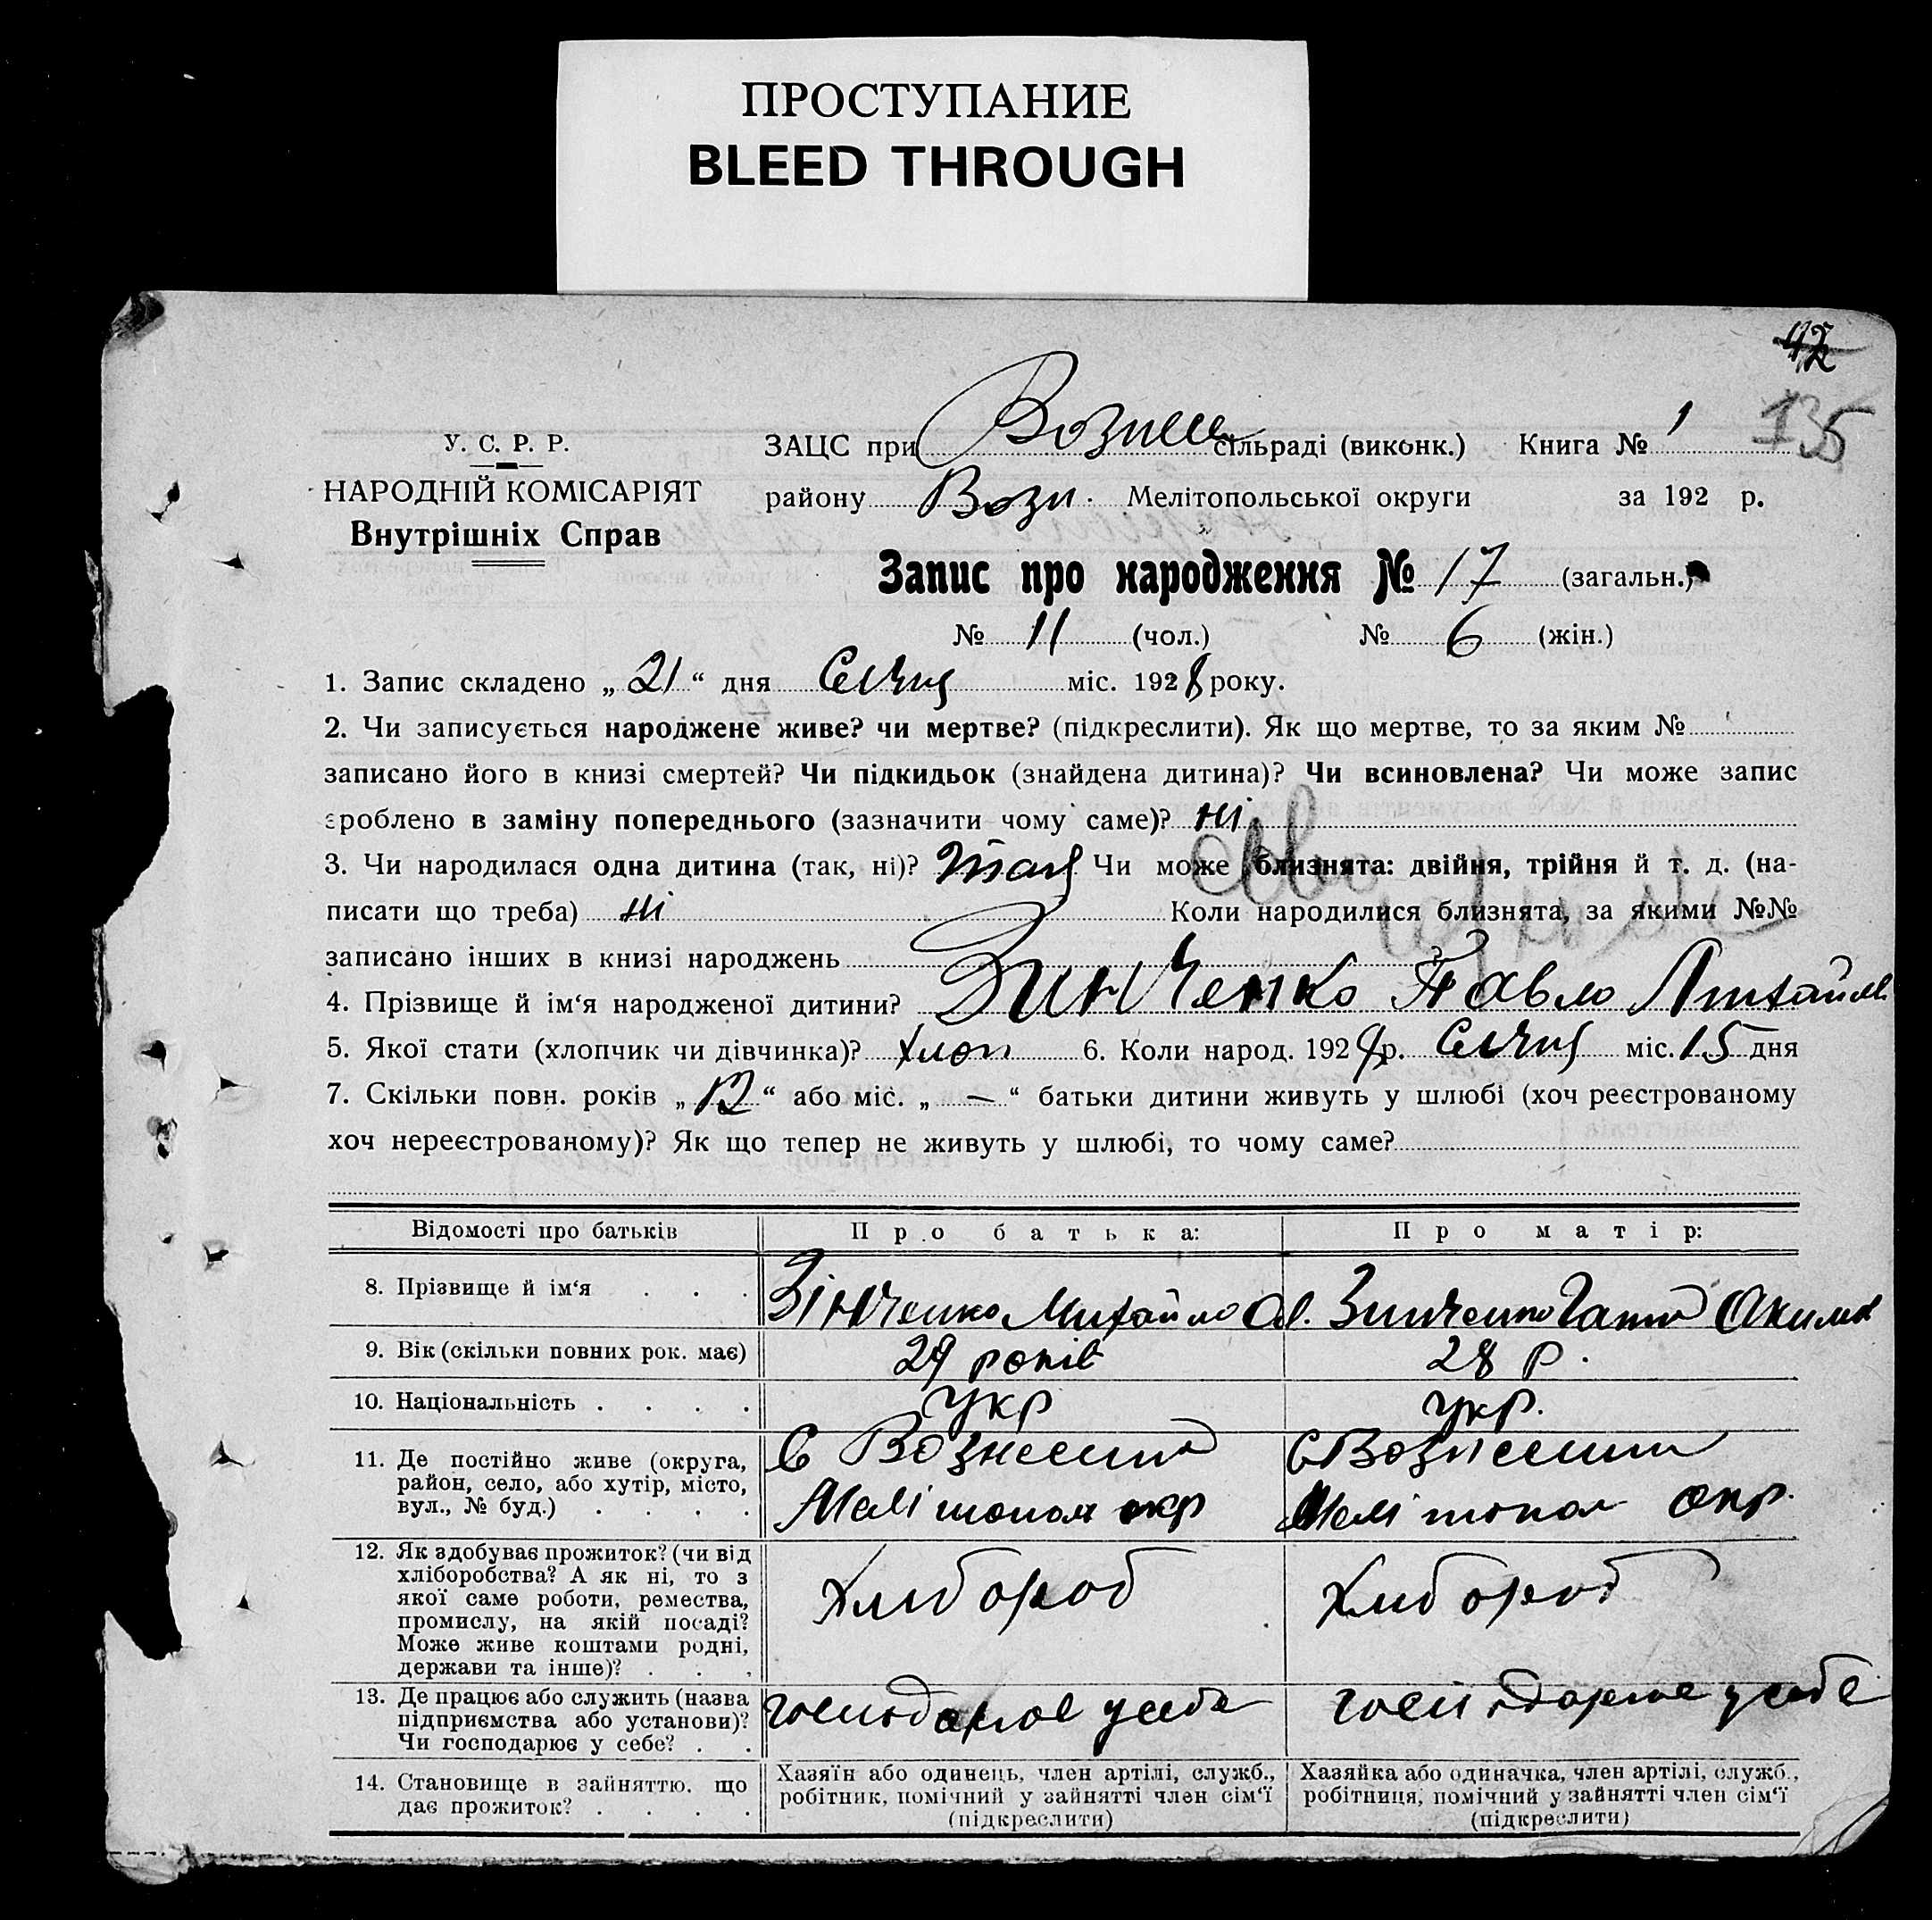 ПРОСТУПАНИЕ
BLEED THROUGH
42
135
У. С. Р. Р.
НАРОДНІЙ КОМІСАРІЯТ
Внутрішніх Справ
ЗАЦС при Вознесе сільраді (виконк.) Книга № 1
району Возн. Мелітопольської округи за 192 р.
Запис про народження № 17 (загальн.)
№ 11 (чол.) № 6 (жін.)
1. Запис складено „ 21 “ дня Січня міс. 1928 року.
2. Чи записується народжене живе? чи мертве? (підкреслити). Як що мертве, то за яким №
записано його в книзі смертей? Чи підкидьок (знайдена дитина)? Чи всиновлена? Чи може запис
зроблено в заміну попереднього (зазначити чому саме)? ні
3. Чи народилася одна дитина (так, ні)? так Чи може близнята: двійня, трійня й т. д. (на-
писати що треба) ні Коли народилися близнята, за якими №№
записано інших в книзі народжень
4. Прізвище й ім‘я народженої дитини? Зинченко Павло Михайлов
5. Якої стати (хлопчик чи дівчинка)? хлоп 6. Коли народ. 192 р. Січня міс. 15 дня
7. Скільки повн. років „ 12 “ або міс. „ — “ батьки дитини живуть у шлюбі (хоч реєстрованому
хоч нереєстрованому)? Як що тепер не живуть у шлюбі, то чому саме?
Відомості про батьків Про батька: Про матір:
8. Прізвище й ім‘я . . . Зінченко Михайло Ол. Зинченко Ганна Окимов
9. Вік (скільки повних рок. має) 29 років 28 р.
10. Національність . . . . укр укр.
11. Де постійно живе (округа,
район, село, або хутір, місто,
вул., № буд.) . . . .
С Вознесенка
Мелітопол окр
С Вознесенка
Мелітопол окр.
12. Як здобуває прожиток? (чи від
хліборобства? А як ні, то з
якої саме роботи, ремества,
промислу, на якій посаді?
Може живе коштами родні,
держави та інше)? . . .
Хлібороб
Хлібороб
13. Де працює або служить (назва
підприємства або установи)?
Чи господарює у себе? . .
господарює у себе
господарює у себе
14. Становище в зайняттю, що
дає прожиток? . . . .
Хазяїн або одинець, член артілі, служб.,
робітник, помічний у зайнятті член сім‘ї
(підкреслити)
Хазяйка або одиначка, член артілі, служб.,
робітниця, помічний у зайнятті член сім‘ї
(підкреслити)